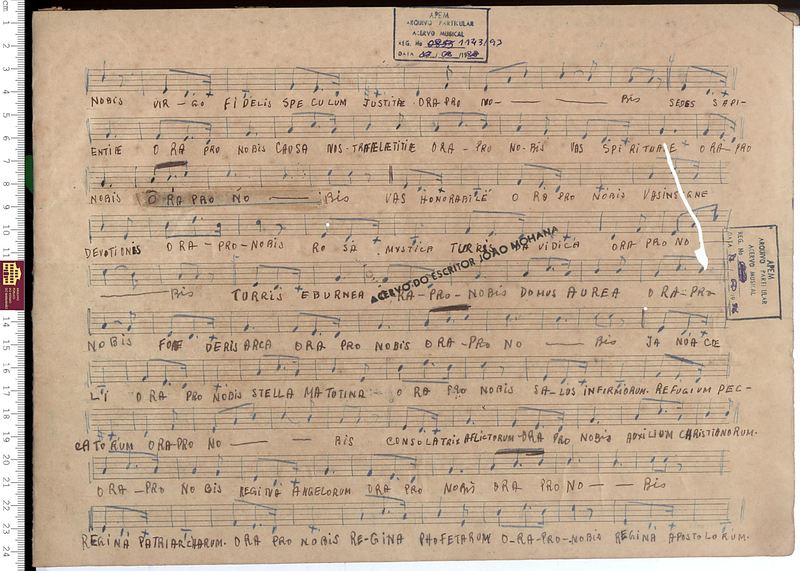 APEM
ARQUIVO PARTICULAR
ACERVO MUSICAL
REG. No 1143/93
DATA
NOBIS VIR - GO FIDELIS SPECULUM JUSTITIE ORA PRO NO - — — BIS SEDES SAPI-
ENTIE O RA PRO NOBIS CAUSA NOS-TRAE LAETITIE ORA - PRO NO-BIS VAS SPIRITUALE ORA-PRO
NOBIS O RA PRO NO — BIS VAS HONORABILE O RA PRO NOBIS VAS INSIGNE
DEVOTIONIS ORA - PRO-NOBIS RO SA MYSTICA TURRIS DAVIDICA ORA PRO NO
— BIS TURRIS EBURNEA ORA-PRO-NOBIS DOMUS AUREA ORA-PRO
ACERVO DO ESCRITOR JOÃO MOHANA
APEM
ARQUIVO PARTICULAR
ACERVO MUSICAL
REG. No
DATA
NOBIS FOE DERIS ARCA ORA PRO NOBIS ORA-PRO NO — BIS JANOA CŒ
LI ORA PRO NOBIS STELLA MATOTINA ORA PRO NOBIS SA-LUS INFIRMORUM. REFUGIUM PEC-
CATORUM ORA PRO NO — — BIS CONSOLATRIX AFLICTORUM-ORA PRO NOBIS AUXILIUM CHRISTIANORUM.
ORA - PRO NOBIS REGINA ANGELORUM ORA PRO NOBIS ORA PRO NO — — BIS
REGINA PATRIARCHARUM. ORA PRO NOBIS RE-GINA PROFETARUM O-RA-PRO-NOBIS REGINA APOSTOLORUM.